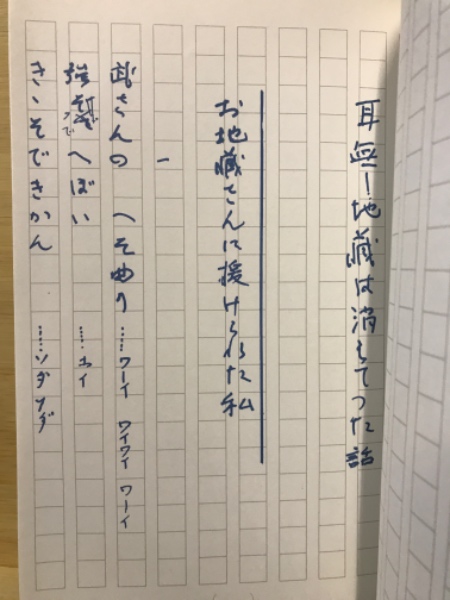 耳無し地蔵は消えてった話
お地蔵さんに援けられた私
一
武さんの へそ曲り……ワーイ ワイワイ ワーイ
強そで へぼい ……ホイ
きゝそできかん ……ソダソダ